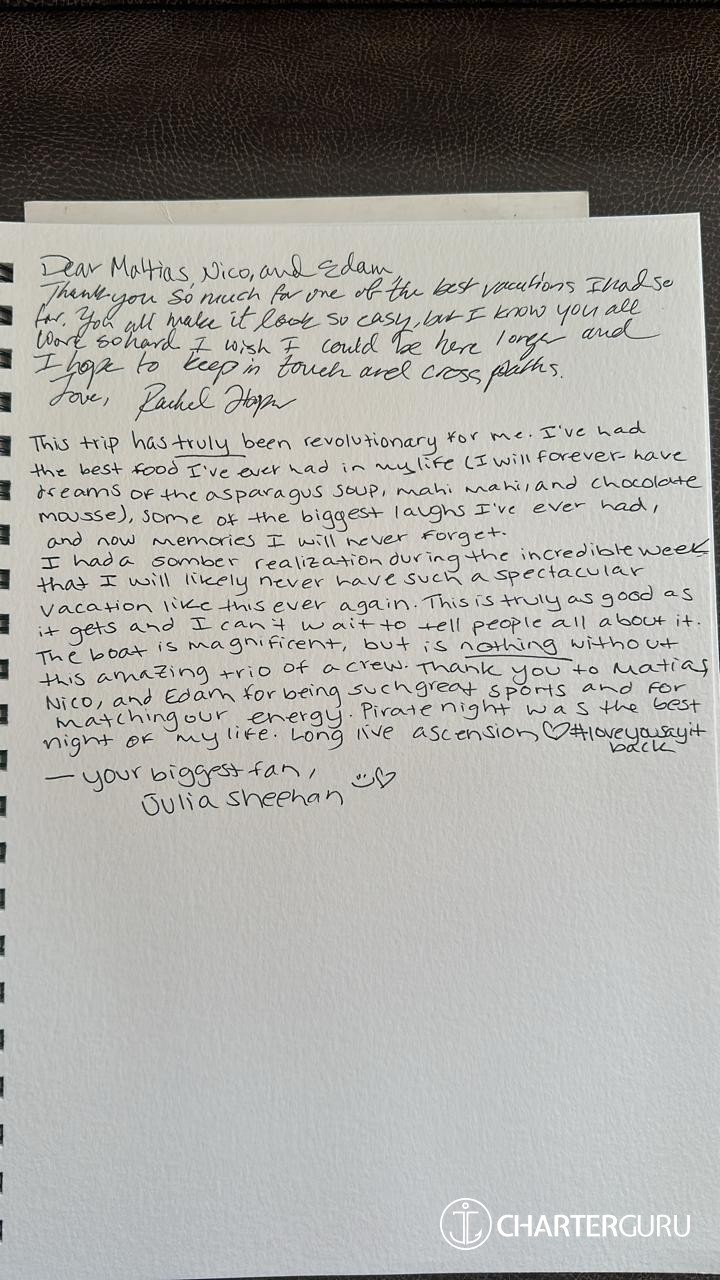 Dear Mattias, Nico, and Edam,
Thank you so much for one of the best vacations I had so
far. You all make it look so easy, but I know you all
work so hard I wish I could be here longer and
I hope to keep in touch and cross paths.
Love, Rachel
This trip has truly been revolutionary for me. I've had
the best food I've ever had in my life (I will forever have
dreams of the asparagus soup, mahi mahi, and chocolate
mousse), some of the biggest laughs I've ever had,
and now memories I will never forget.
I had a somber realization during the incredible week
that I will likely never have such a spectacular
vacation like this ever again. This is truly as good as
it gets and I can't wait to tell people all about it.
The boat is magnificent, but is nothing without
this amazing trio of a crew. Thank you to Matias,
Nico, and Edam for being such great sports and for
matching our energy. Pirate night was the best
night of my life. Long live ascension ♡ #loveyousayit
back
— your biggest fan,
Julia Sheehan
CHARTERGURU